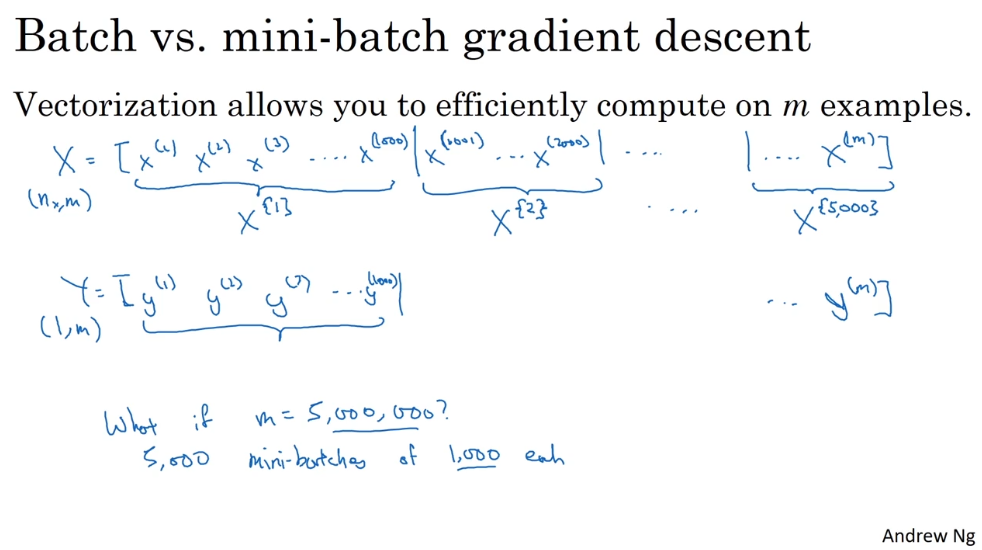 Batch vs. mini-batch gradient descent
Vectorization allows you to efficiently compute on m examples.
X = [x^(1) x^(2) x^(3) .... x^(1000) | x^(1001) ... x^(2000) | .... | .... x^(m)]
(n_x, m)
X^{1} X^{2} .... X^{5,000}
Y = [y^(1) y^(2) y^(3) ... y^(1000) | ... y^(m)]
(1, m)
What if m = 5,000,000?
5,000 mini-batches of 1,000 each
Andrew Ng